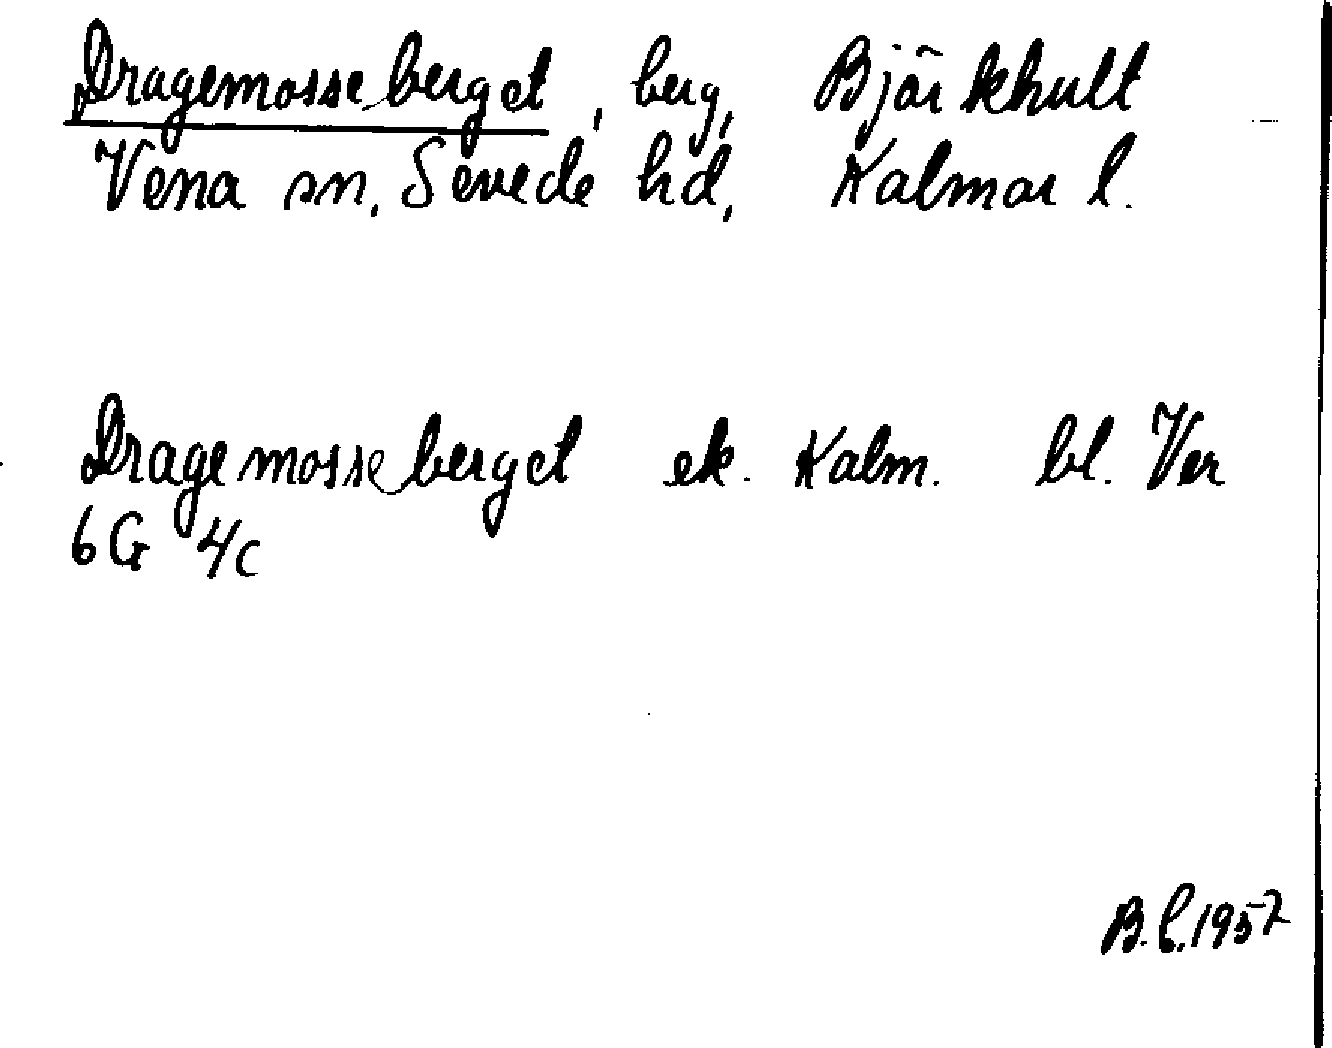 Dragemosseberget, berg, Björkhult
Vena sn, Sevede hd, Kalmar l.
Dragemosseberget ek. Kalm. bl. Ven
6G 4c
B.C. 1957